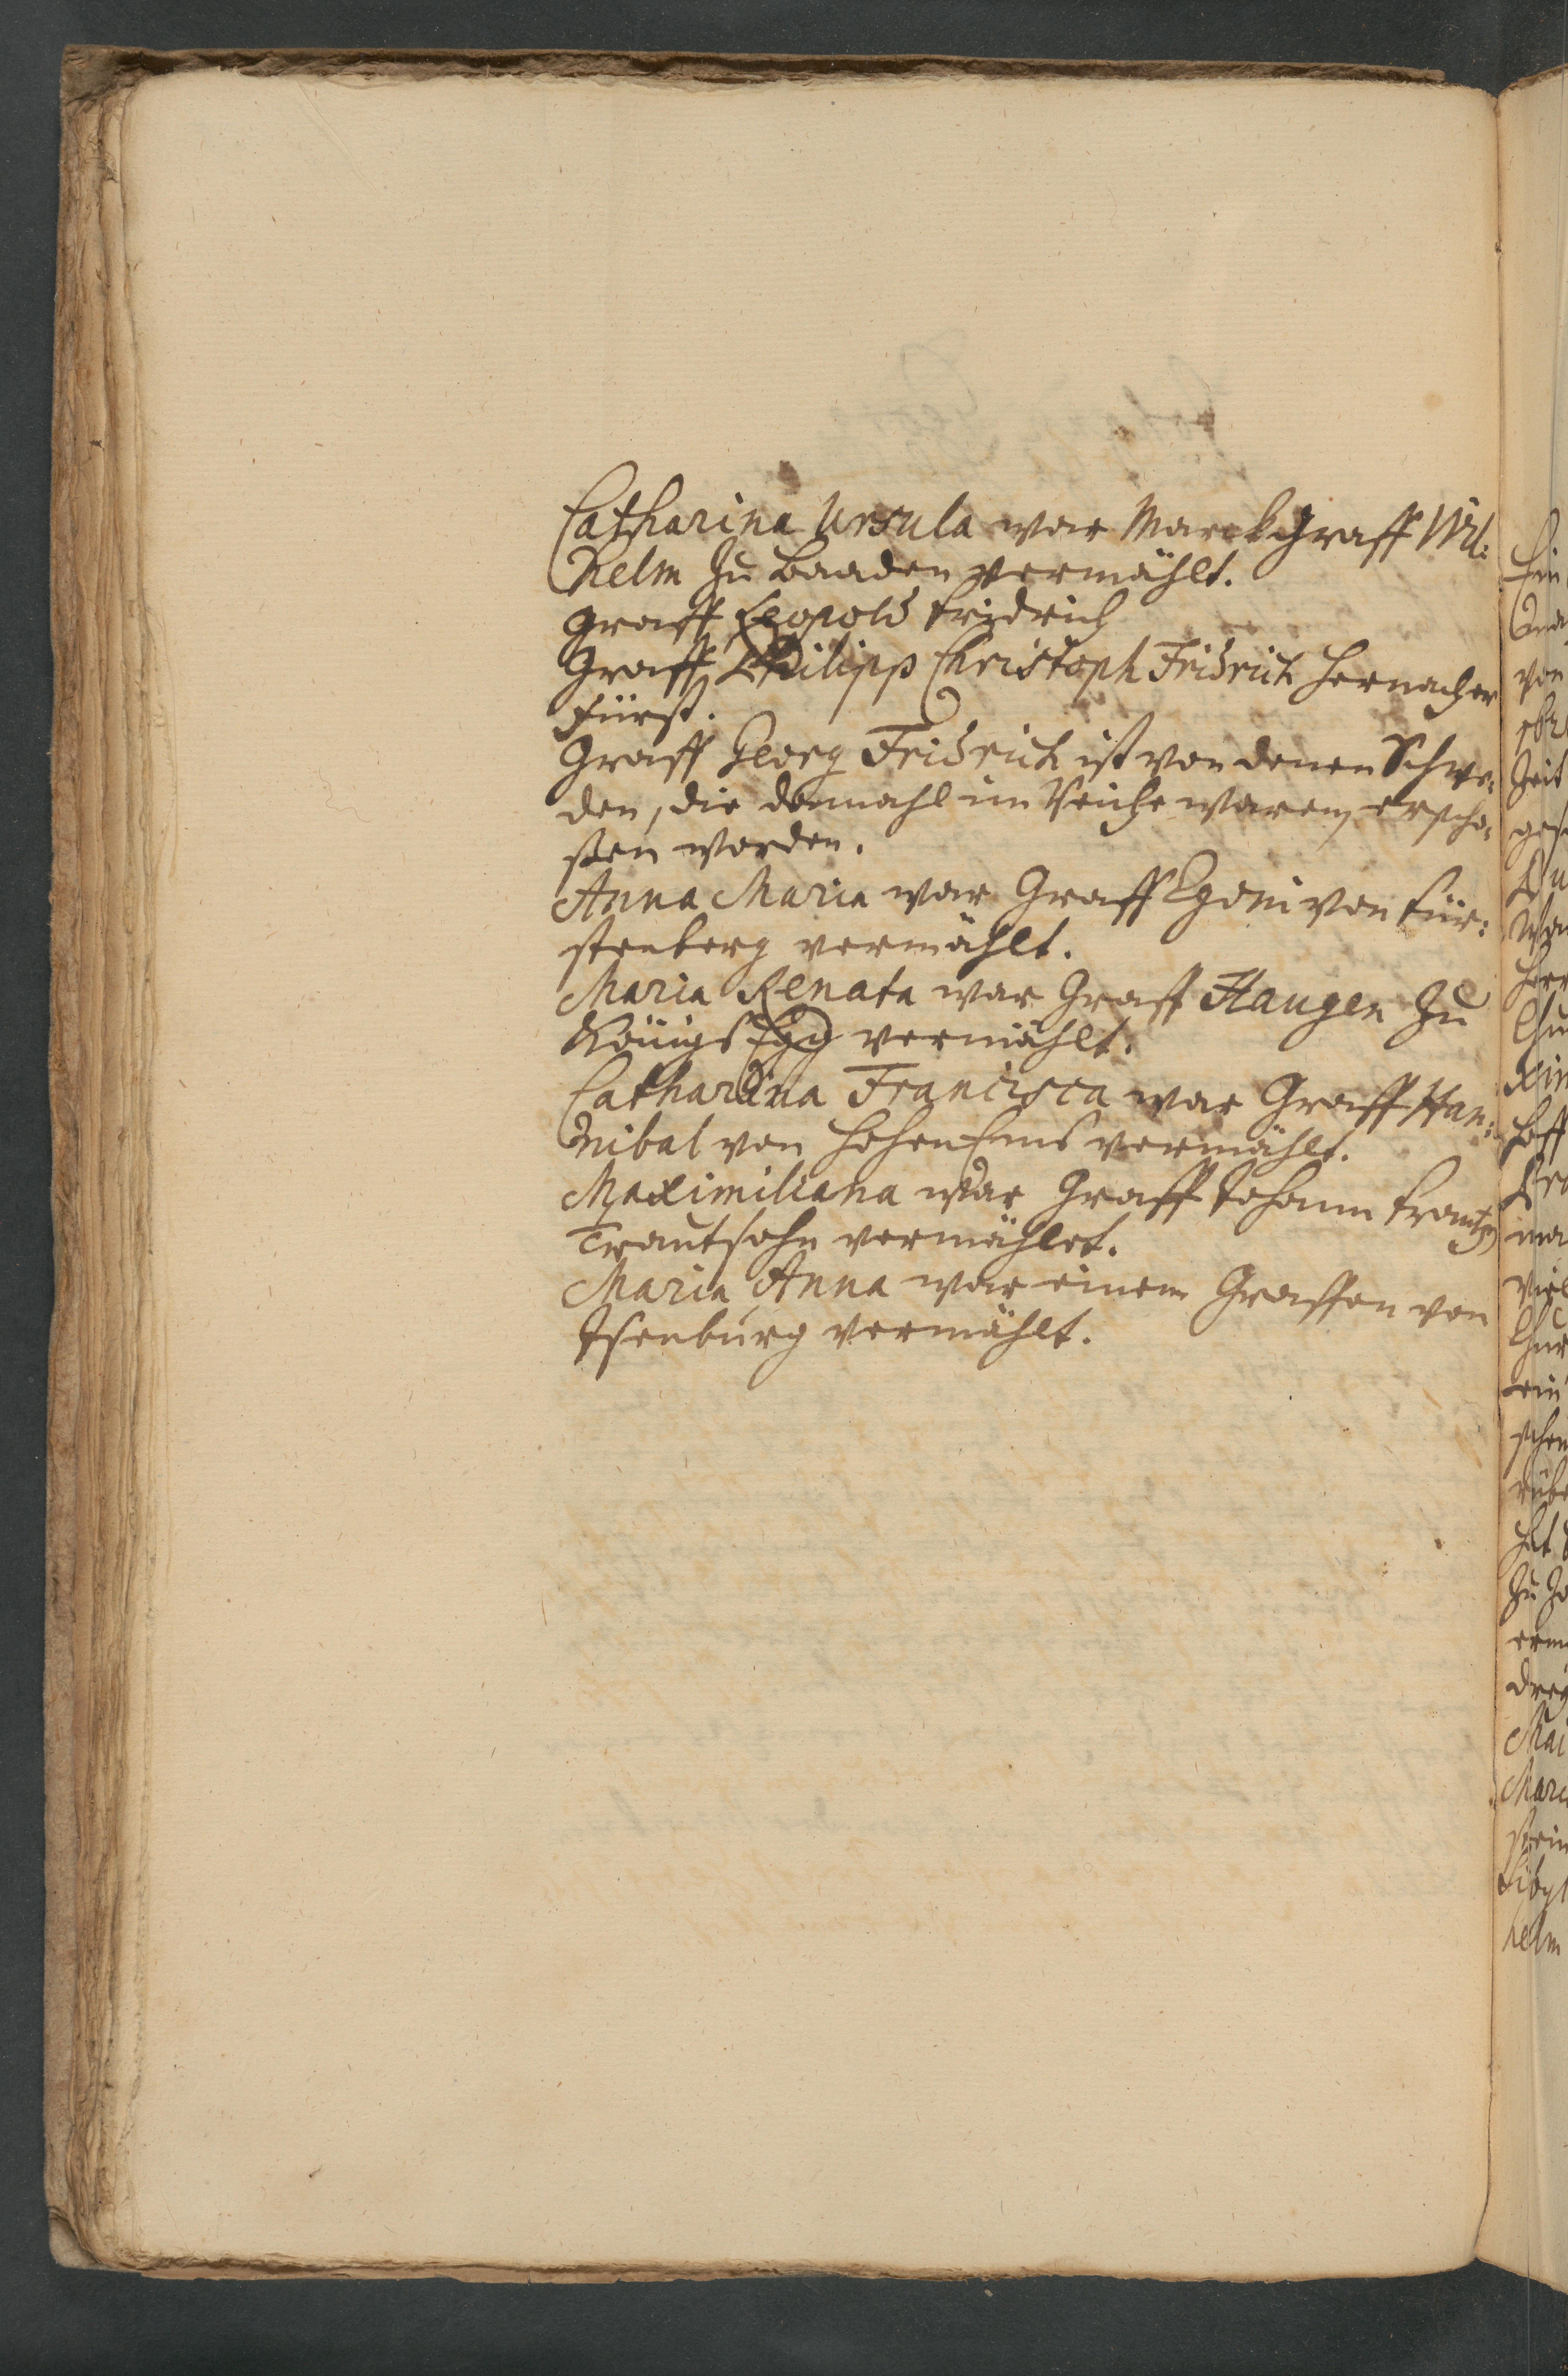 Catharina Ursula war Marckgraff Wil:
helm zu Baaden vermählt.
Graff Leopold Fridrich
Graff Philipp Christoph Fridrich hernacher
Fürst.
Graff Georg Fridrich ist von denen Schwe:
den, die damahl im Reiche waren, erscho:
ßen worden.
Anna Maria war Graff Egoni von Für:
stenberg vermählt.
Maria Renata war Graff Haugen zu
Königs Egg vermählt.
Catharina Francisca war Graff Han:
nibal von Hohen Ems vermählt.
Maximiliana war Graff Johann Frantzen
Trautsohn vermählet.
Maria Anna war einem Graffen von
Isenburg vermählt.